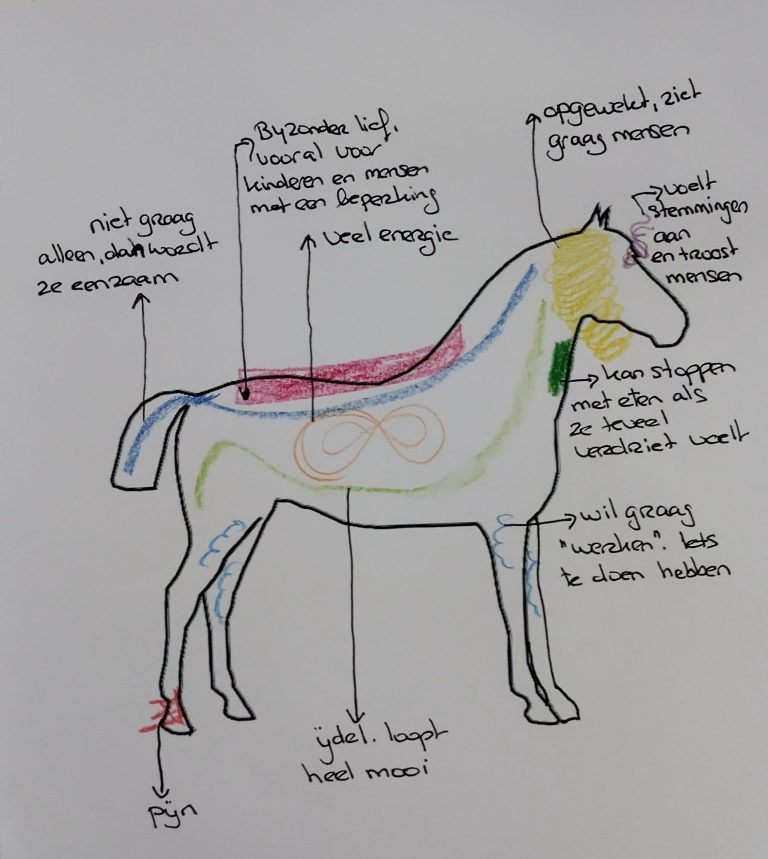 opgewekt, ziet
graag mensen
Byzonder lief,
vooral voor
kinderen en mensen
met een beperking
veel energie
niet graag
alleen, dan wordt
ze eenzaam
voelt
stemmingen
aan
en troost
mensen
kan stoppen
met eten als
ze teveel
verdriet voelt
wil graag
"werken". Iets
te doen hebben
ijdel. loopt
heel mooi
pijn